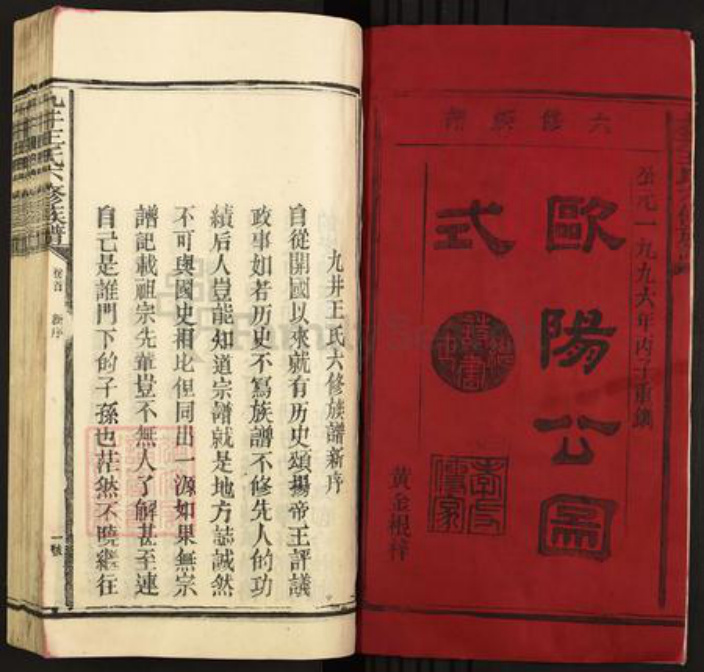 六修
公元一九九六年丙子重鐫
歐陽公圖
式
黃金棍梓
九井王氏六修族譜新序
自從開國以來就有历史頌揚帝王評議
政事如若历史不寫族譜不修先人的功
績后人豈能知道宗譜就是地方誌誠然
不可與國史相比但同出一源如果無宗
譜記載祖宗先輩豈不無人了解甚至連
自己是誰門下的子孫也茫然不曉繼往
九井王氏六修族譜
卷首
新序
一號